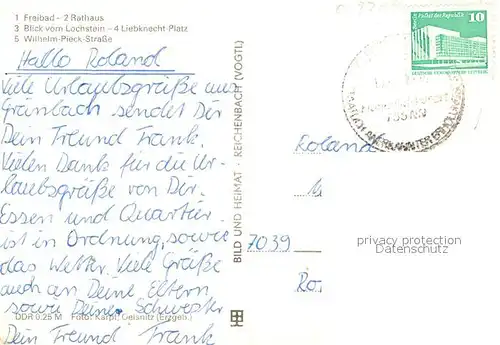 1 Freibad – 2 Rathaus
3 Blick vom Lochstein – 4 Liebknecht-Platz
5 Wilhelm-Pieck-Straße
Hallo Roland
Viele Urlaubsgräße aus
Grünbach sendet Dir
Dein Freund Frank.
Vielen Dank für die Ur-
laubsgräße von Dir.
Essen und Quartier
ist in Ordnung, sowie
das Wetter. Viele Gräße
auch an Deine Eltern
sowie Deiner Schwester
Dein Freund Frank
DDR 0.25 M Foto: Karpf, Oelsnitz (Erzgeb.)
BILD UND HEIMAT · REICHENBACH (VOGTL)
10
DEUTSCHE DEMOKRATISCHE REPUBLIK
Roland
7039
Ro.
privacy protection
Datenschutz